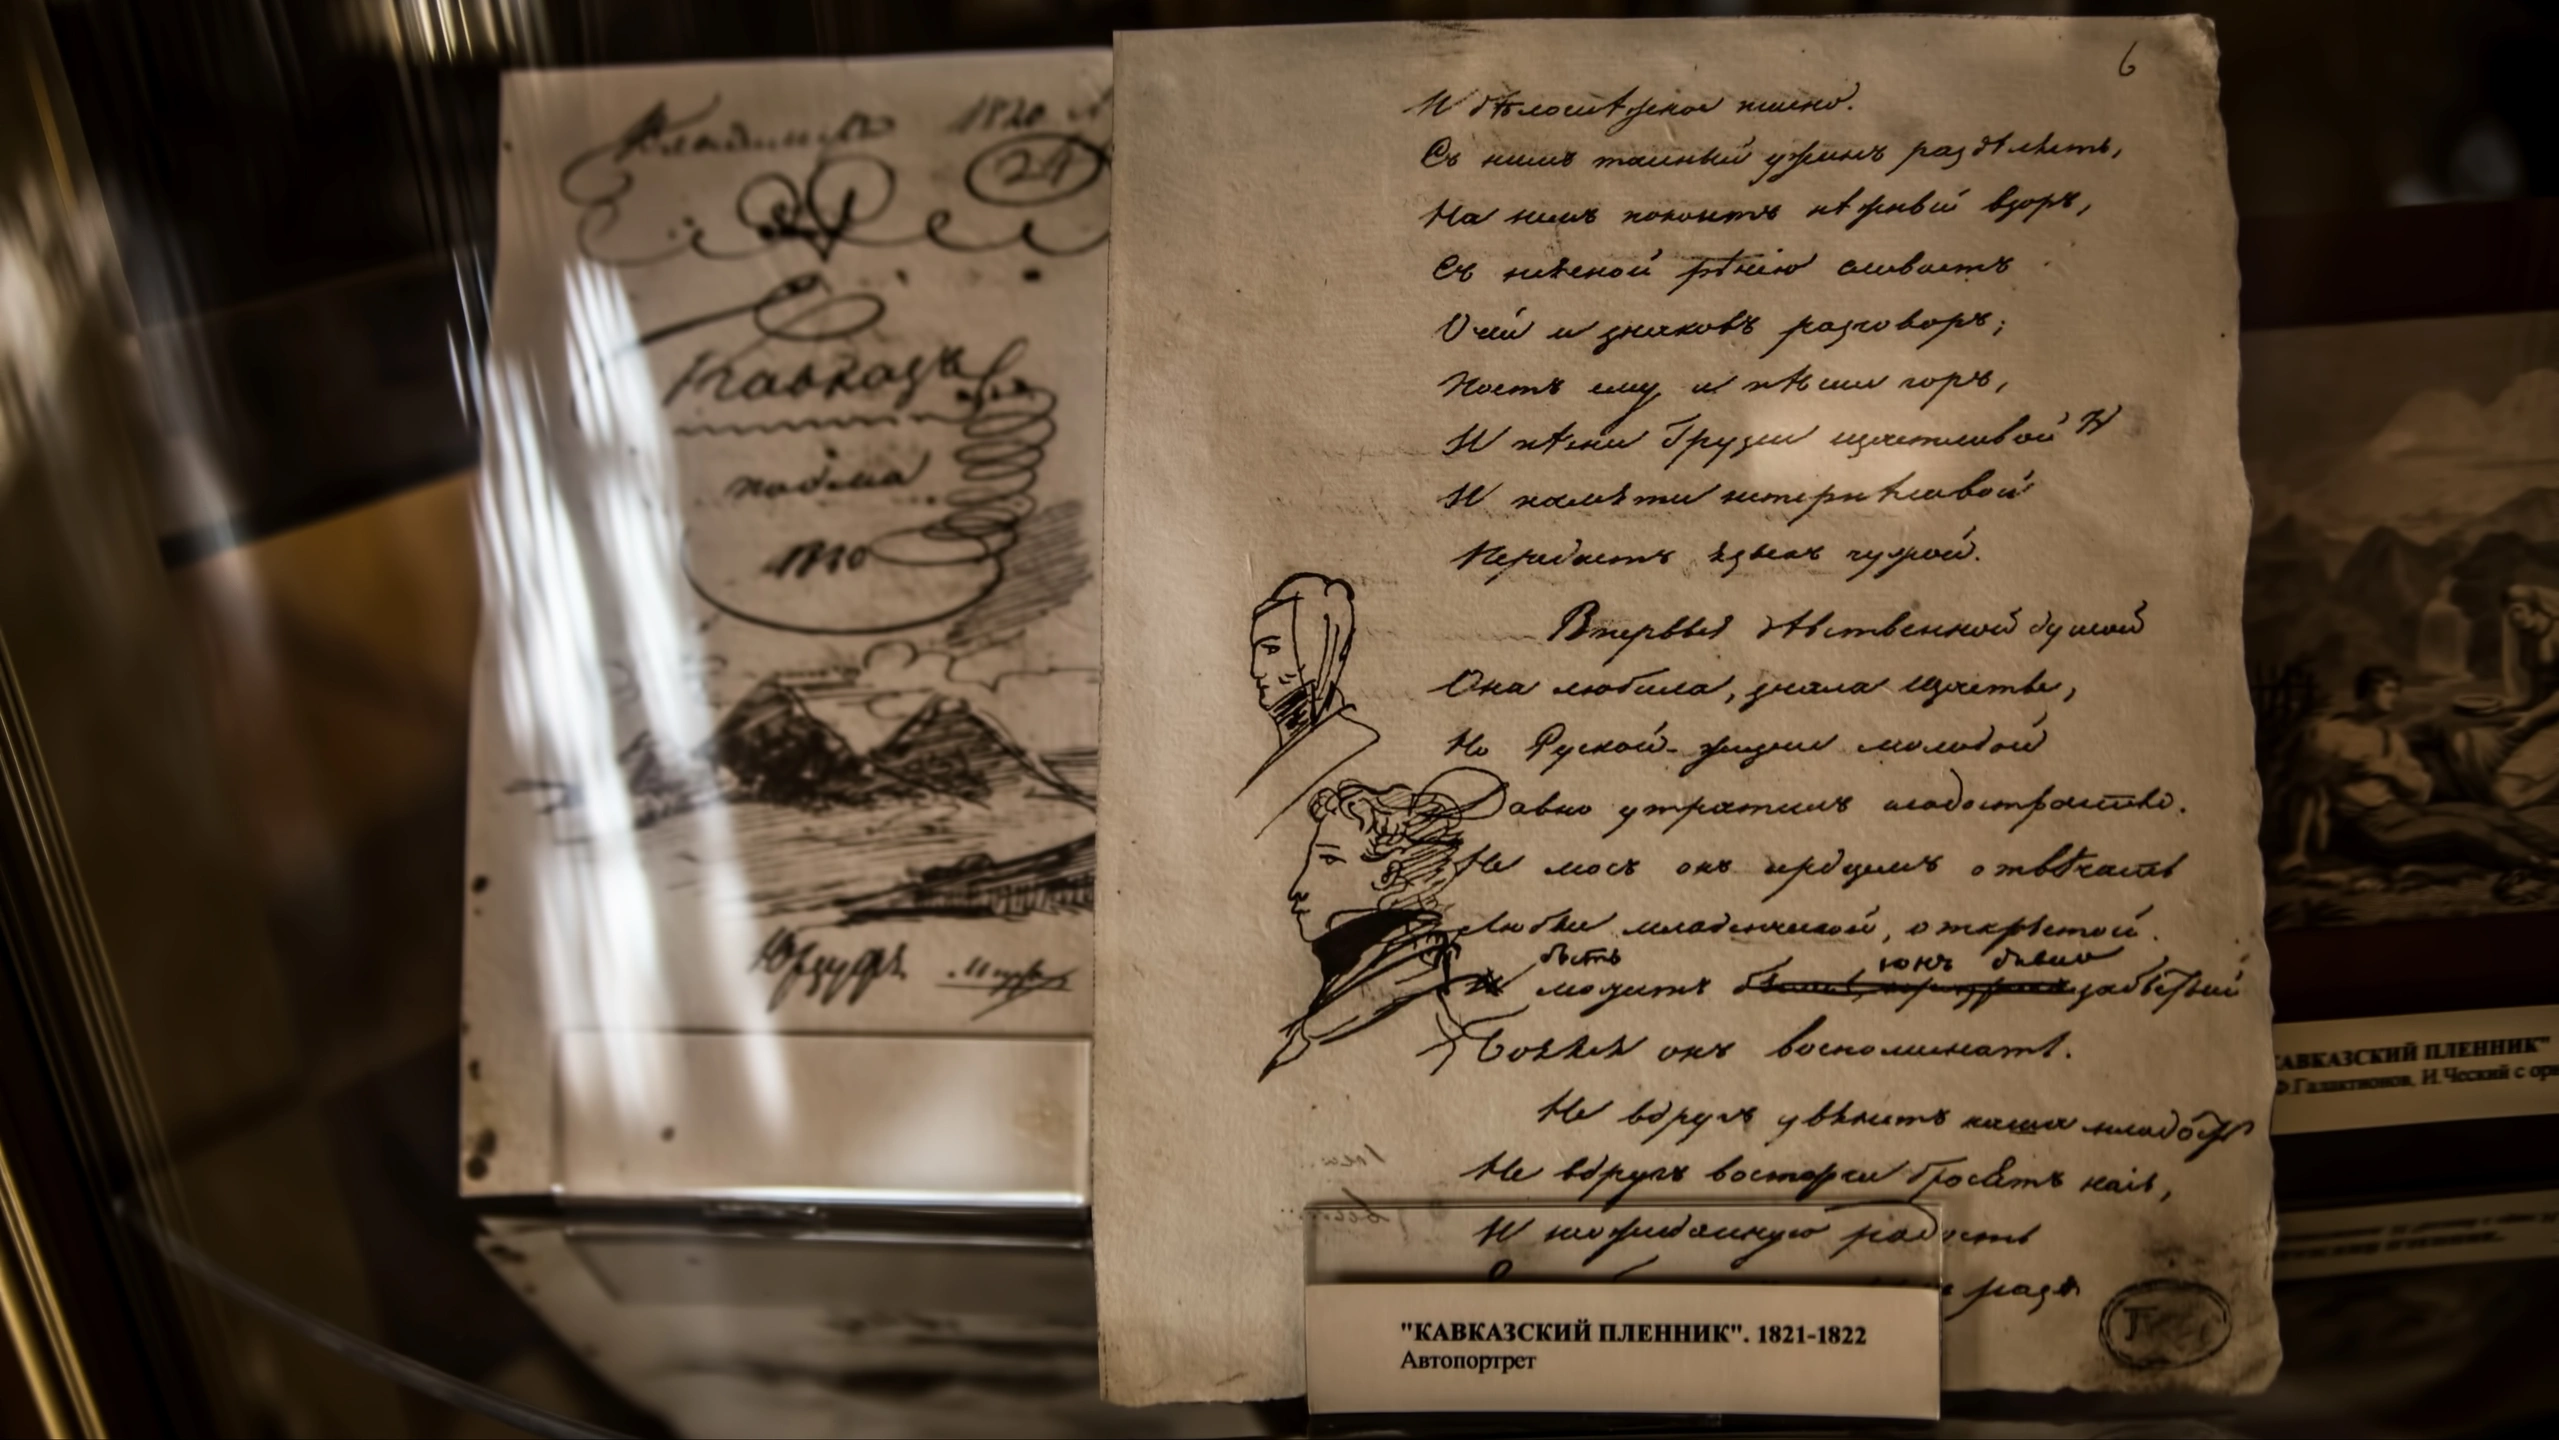 1820
24
Кавказъ
поэма
1820
Юрзуфъ
6
И бѣлоснѣжное пшено.
Съ нимъ тайный ужинъ раздѣляетъ,
На немъ покоитъ нѣжный взоръ,
Съ неясной рѣчію сливаетъ
Очей и знаковъ разговоръ;
Поетъ ему и пѣсни горъ,
И пѣсни Грузіи щастливой
И памяти нетерпѣливой
Передаетъ языкъ чужой.
Впервые дѣвственной душой
Она любила, знала щастье,
Но Руской жизни молодой
Давно утратилъ сладострастье.
Не могъ онъ сердцемъ отвѣчать
Любви младенческой, открытой.
быть
можетъ забытый
Боялся онъ воспоминать.
Не вдругъ увянетъ наша младость
Не вдругъ восторги бросятъ насъ,
И неожиданную радость
разъ
"КАВКАЗСКИЙ ПЛЕННИК". 1821-1822
Автопортрет
КАВКАЗСКИЙ ПЛЕННИК"
Ф.Галактионов, И.Ческий с ори